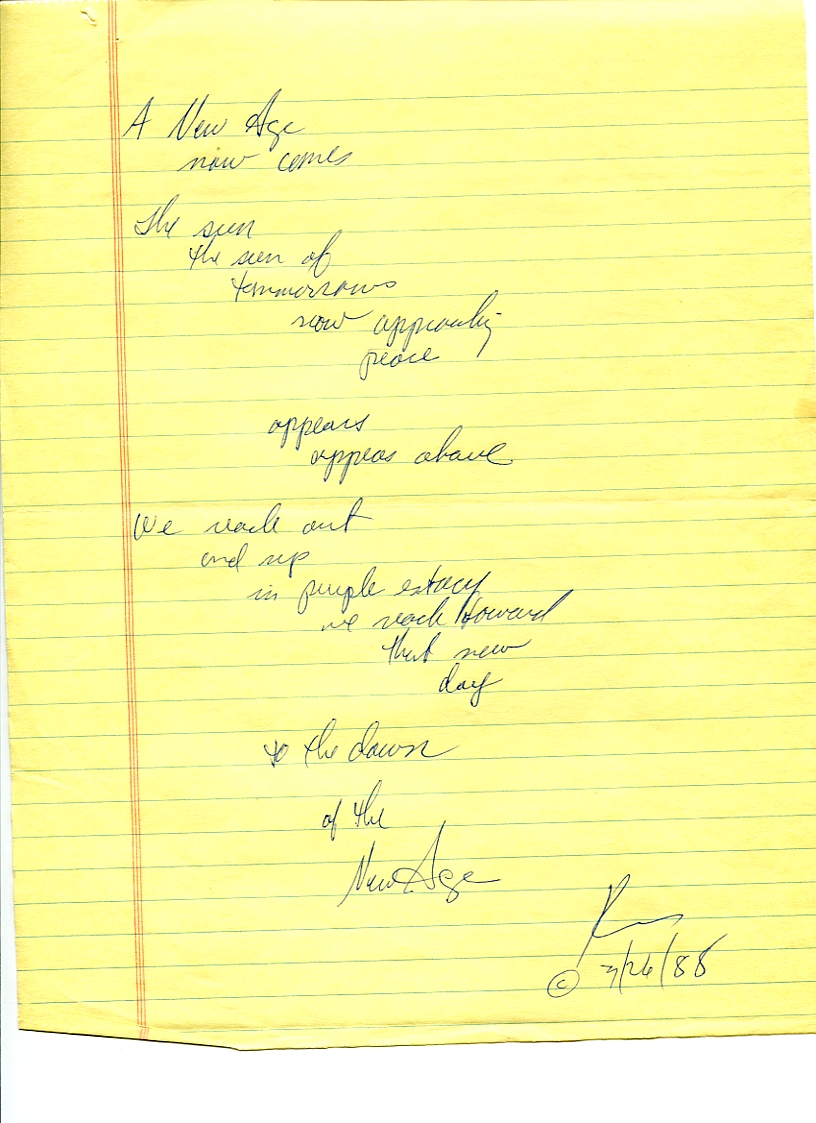 A New Age
now comes
The sun
the sun of
tommorrows
now approachig
peace
appears
appeas above
We reach out
and up
in purple extacy
we reach toward
that new
day
to the dawn
of the
New Age
© /26/88